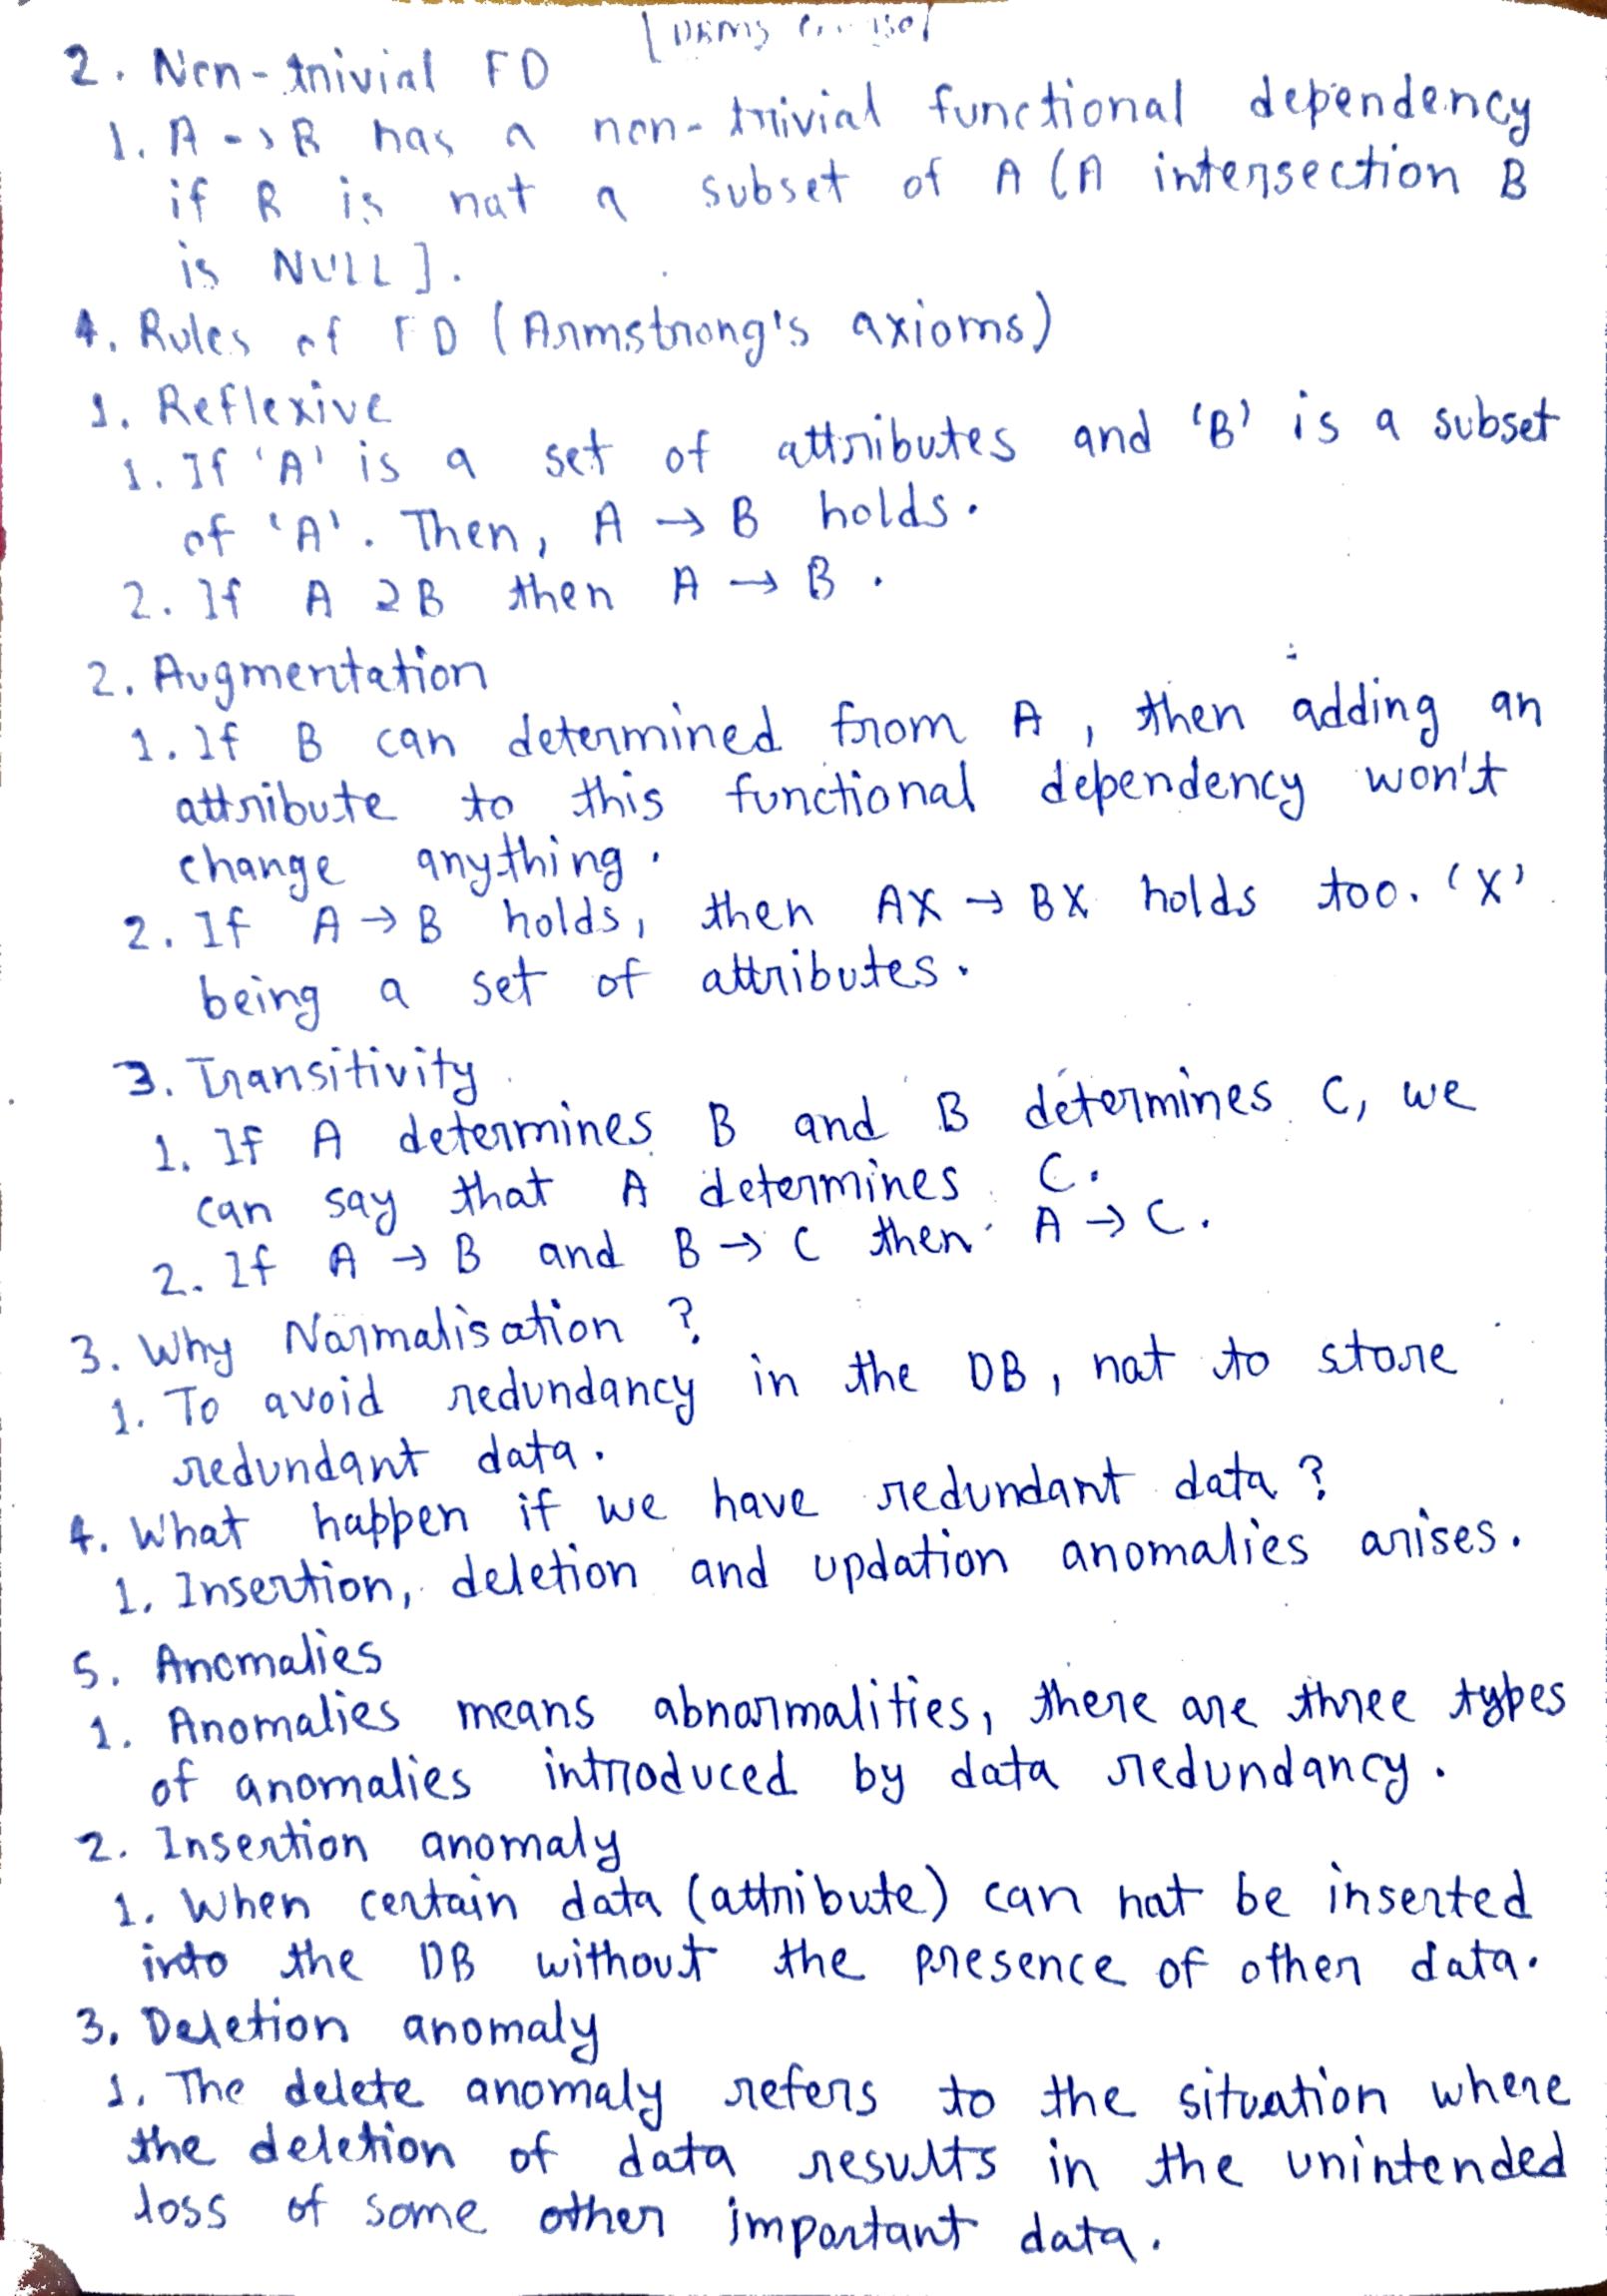 [DBMS
2. Non-trivial FD
1. A -> B has a non-trivial functional dependency
if B is not a subset of A (A intersection B
is NULL].
4. Rules of FD (Armstrong's axioms)
1. Reflexive
1. If 'A' is a set of attributes and 'B' is a subset
of 'A'. Then, A → B holds.
2. If A ⊇ B then A → B.
2. Augmentation
1. If B can determined from A, then adding an
attribute to this functional dependency won't
change anything.
2. If A → B holds, then AX → BX holds too. 'X'
being a set of attributes.
3. Transitivity
1. If A determines B and B determines C, we
can say that A determines C.
2. If A → B and B → C then A → C.
3. Why Normalisation ?
1. To avoid redundancy in the DB, not to store
redundant data.
4. What happen if we have redundant data ?
1. Insertion, deletion and updation anomalies arises.
5. Anomalies
1. Anomalies means abnormalities, there are three types
of anomalies introduced by data redundancy.
2. Insertion anomaly
1. When certain data (attribute) can not be inserted
into the DB without the presence of other data.
3. Deletion anomaly
1. The delete anomaly refers to the situation where
the deletion of data results in the unintended
loss of some other important data.